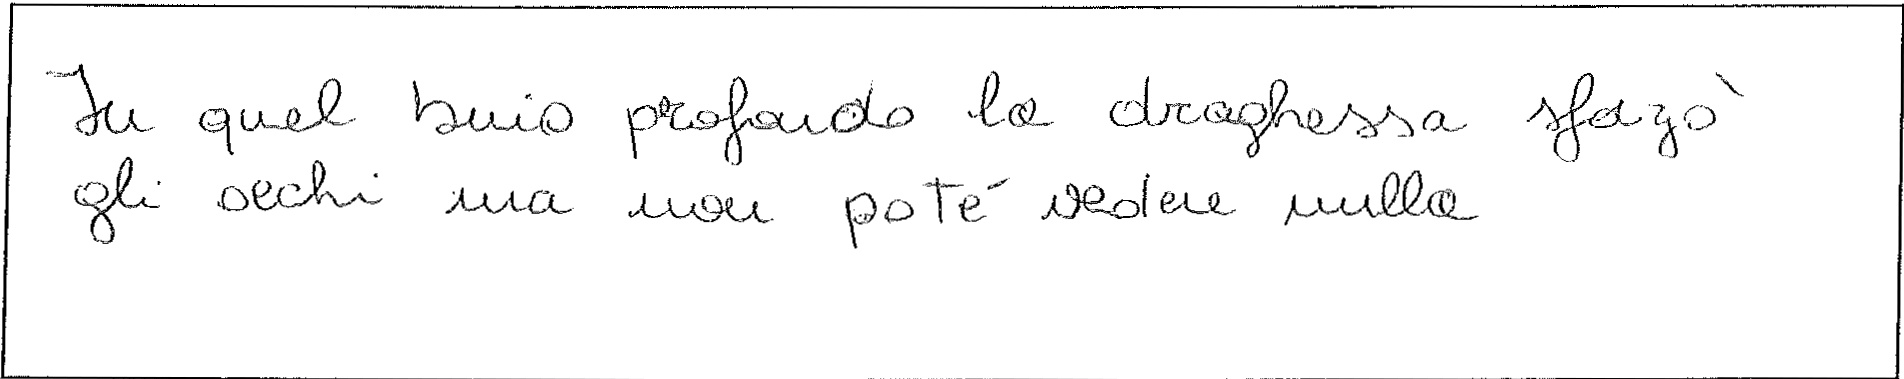 In quel buio profondo la draghessa sfozò
gli occhi ma non poté vedere nulla